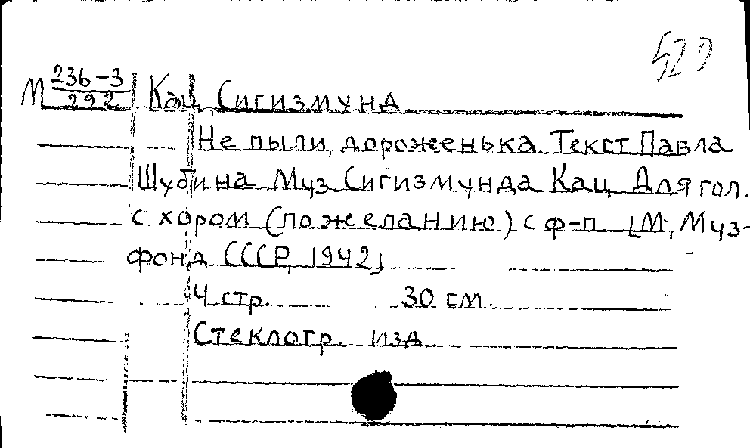 529
М 236-3
292
Кац, Сигизмунд
Не пыли, дороженька. Текст Павла
Шубина Муз. Сигизмунда Кац. Для гол.
с хором (по желанию) с ф-п. [М., Муз-
фонд СССР, 1942]
4 стр. 30 см.
Стеклогр. изд.